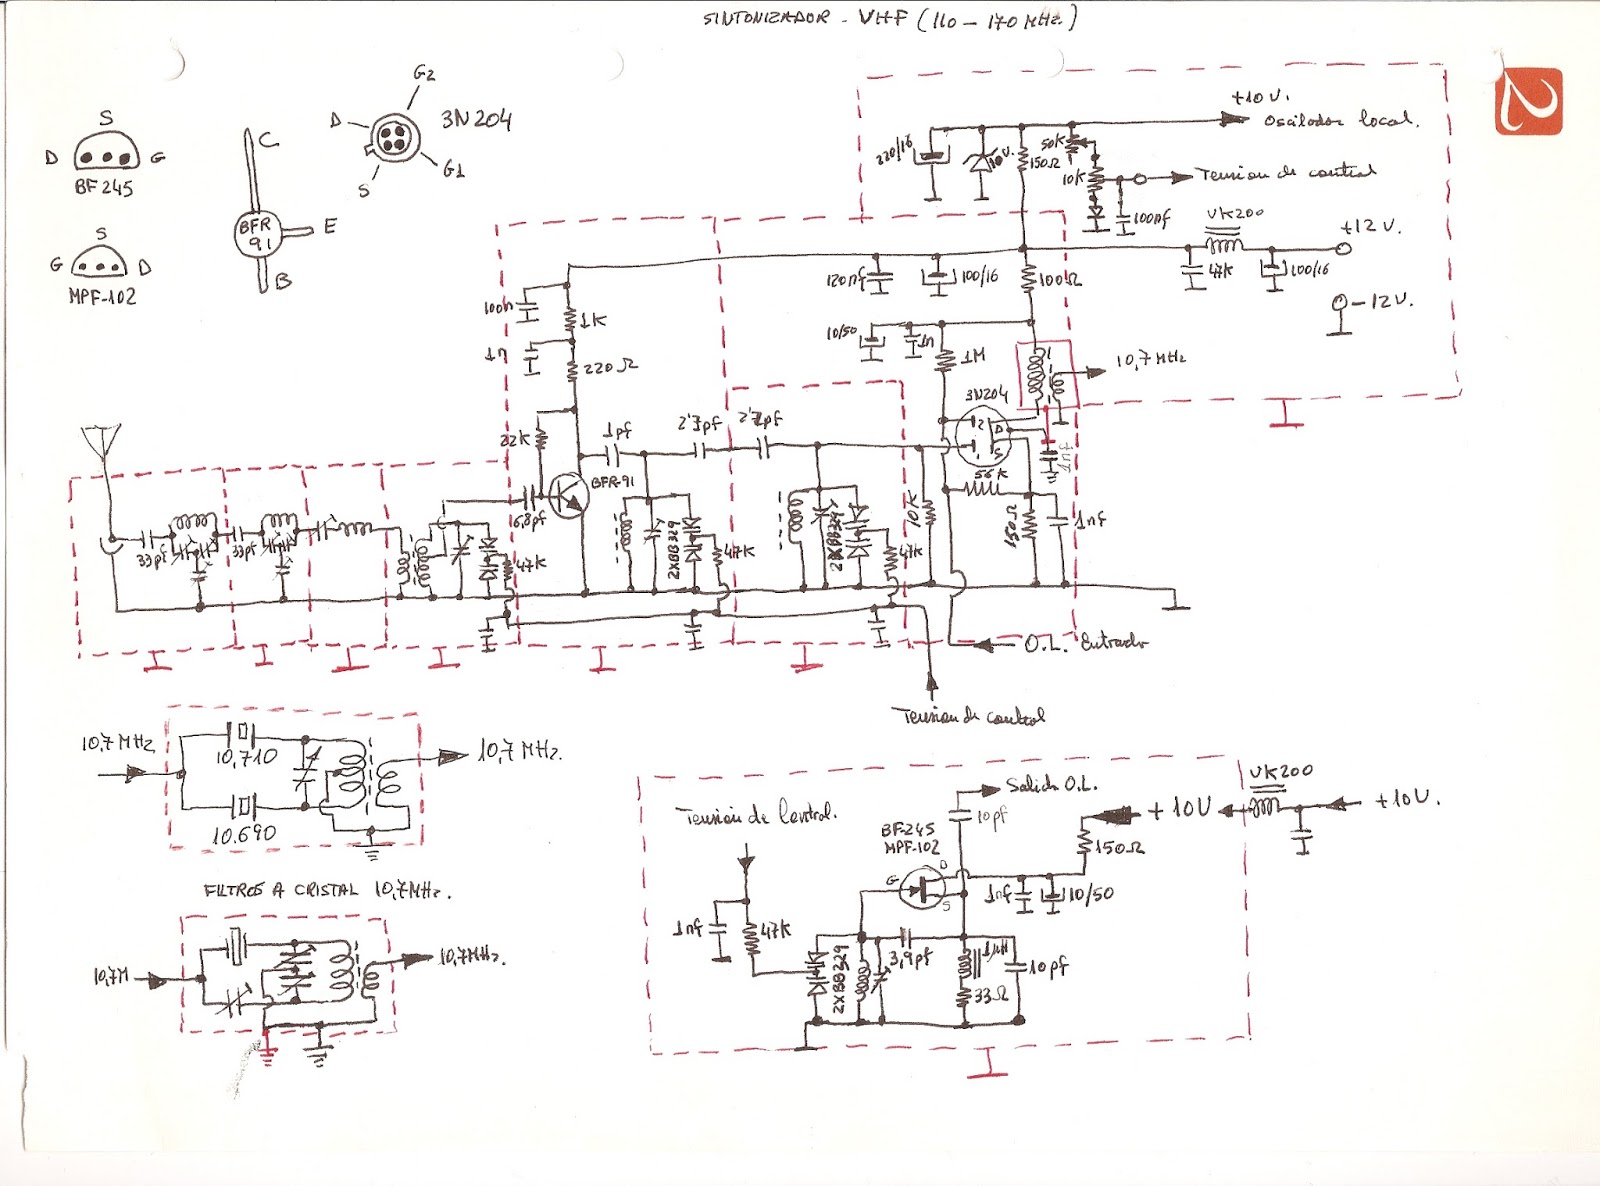 SINTONIZADOR - VHF (110 - 170 MHz.)
S
D
G
BF 245
S
G
D
MPF-102
C
BFR
91
E
B
G2
D
3N204
G1
S
+10V.
Oscilador local.
220/16
10V.
150Ω
50K
10K
Tension de control
100nf
VK200
+12V.
47K
100/16
-12V.
120nf
100/16
100Ω
100n
1K
1n
220Ω
10/50
1n
1M
10,7 MHz
3N204
22K
1pf
2,7pf
2,7pf
2
D
1
S
BFR-91
56K
6,8pf
33pf
33pf
47K
2XBB329
47K
2XBB329
47K
10K
150Ω
1nf
O.L. Entrada
Tension de control
10,7 MHz
10,710
10,7 MHz.
10.690
FILTROS A CRISTAL 10,7MHz.
10,7M
10,7MHz.
Tension de Control.
Salida O.L.
10pf
BF-245
MPF-102
D
G
S
+10V
VK200
+10V.
150Ω
1nf
10/50
1nf
47K
2XBB329
3,9pf
1μH
33Ω
10pf